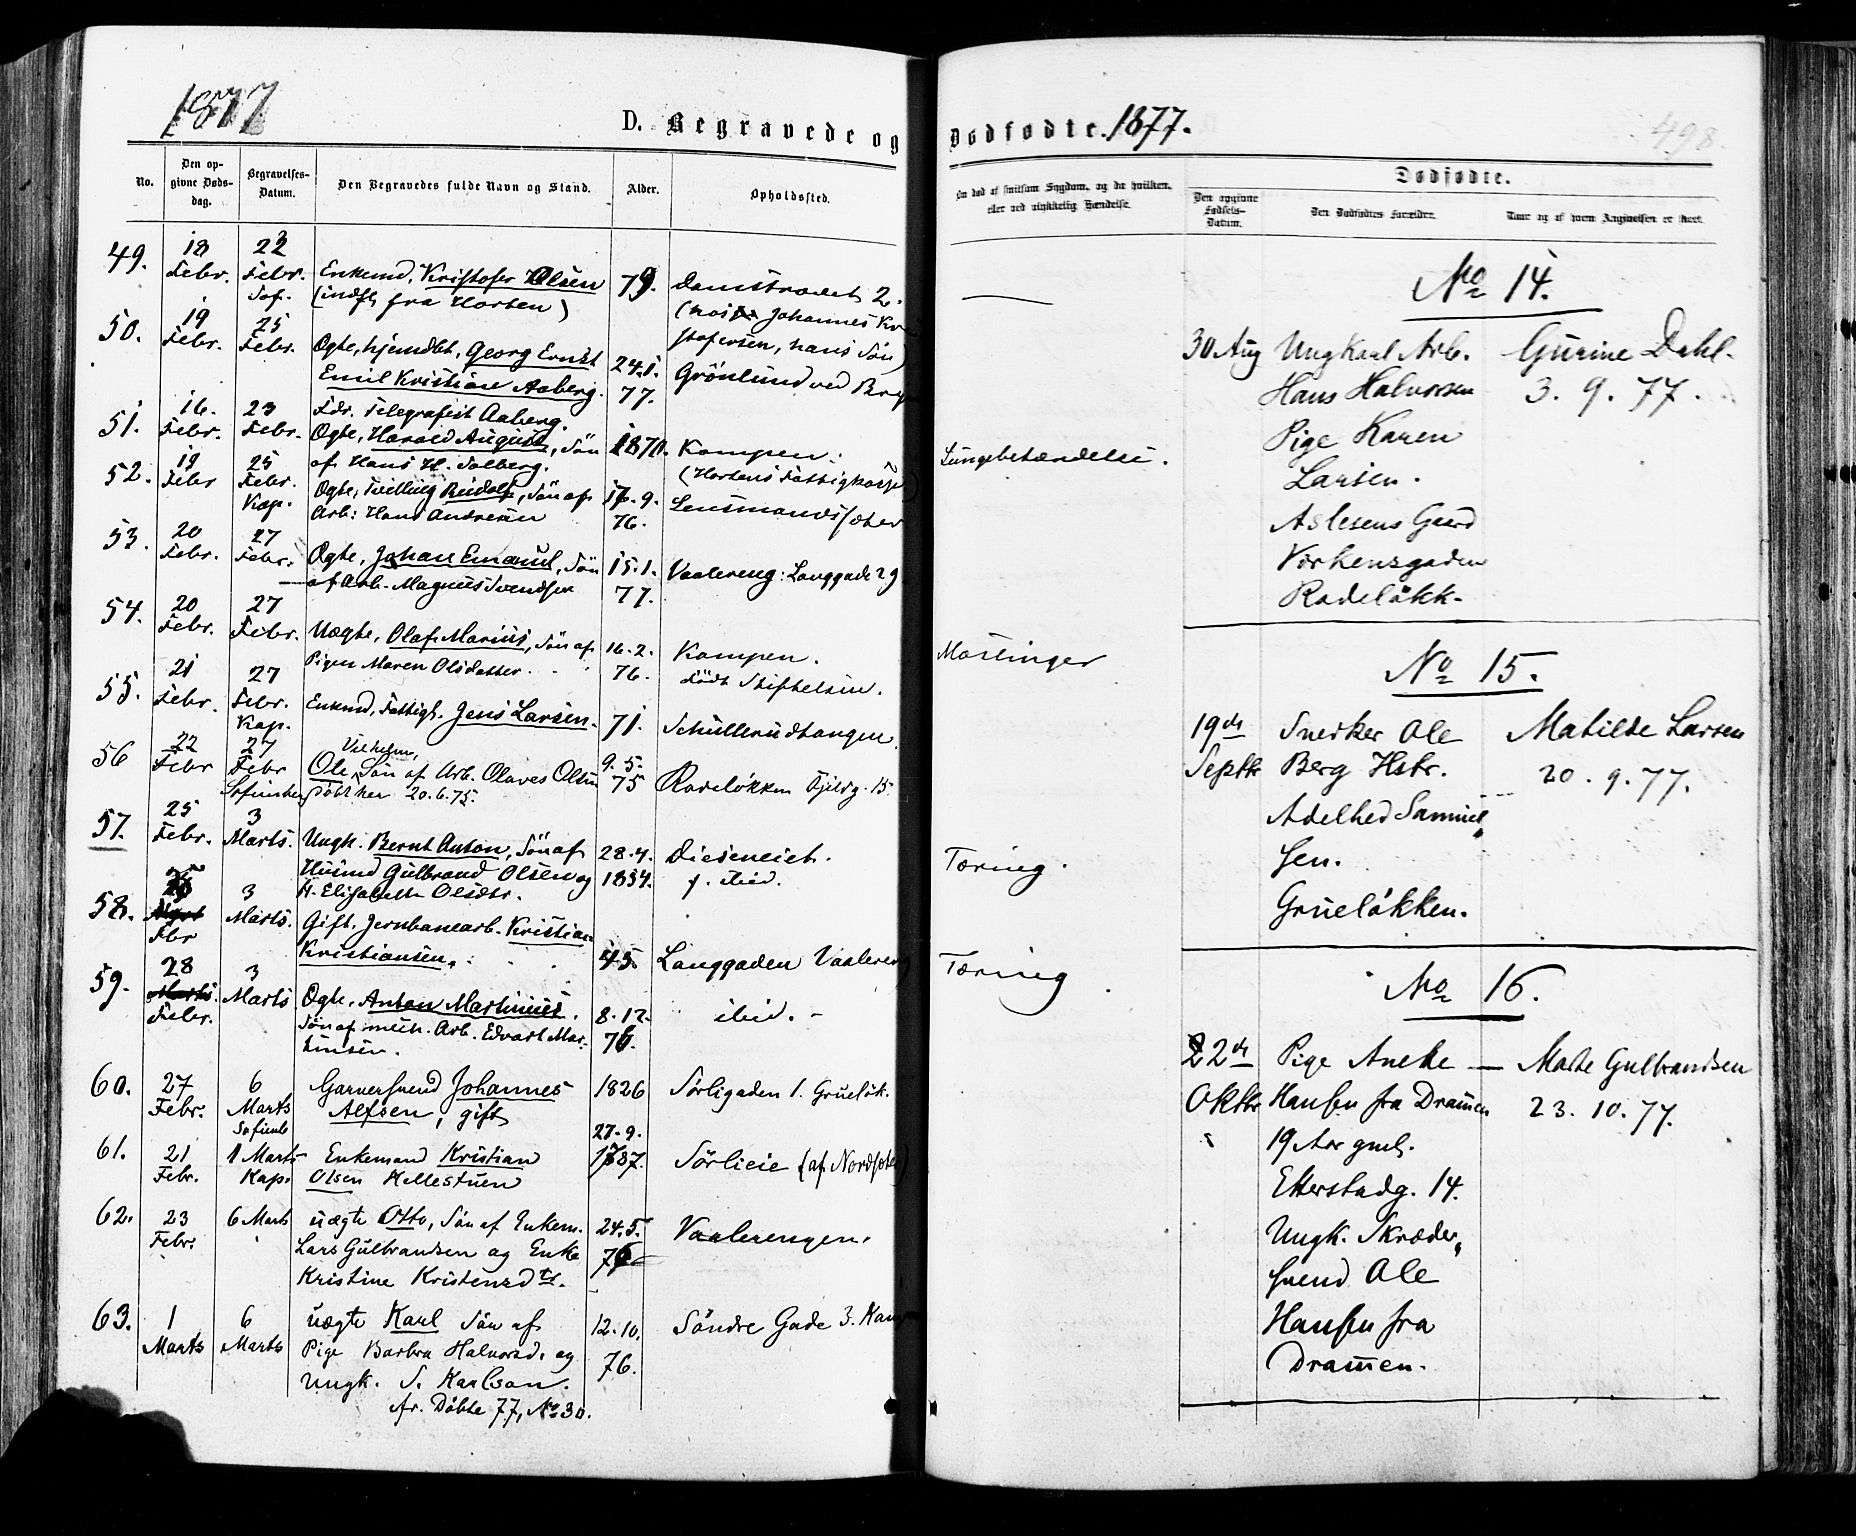 1877
D. Begravede og
No.
Den op-
givne Døds-
dag.
Begravelses-
Datum.
Den Begravedes fulde Navn og Stand.
Alder.
Opholdssted.
49.
18
Febr.
22
Febr.
Sof.
Enkemd, Kristofer Olsen
(indfl. fra Horten)
79.
Damstrædet 2.
(hos Johannes Kri
stofersen, hans Søn)
50.
19
Febr.
25
Febr.
Ogte, hjemdbt, Georg Ernst
Emil Kristian Aaberg.
Fdr. Telegrafist Aaberg.
24.1.
77.
Grönlund ved Bryn
51.
16.
Febr.
23
Febr.
Ogte, Harald August, Sön
af Hans H. Solberg.
1870.
Kampen.
(Hortens Fattigkasse)
52.
19
Febr
25
Febr.
Kap.
Ogte, Tvilling Rudolf, Sön af
Arb: Hans Andersen
17.9.
76.
Lensmandssæter
53.
20
Febr.
27
Febr.
Ogte, Johan Emanuel, Sön
af Arb. Magnus Svendsen
15.1.
77.
Vaalereng: Langgade 29
54.
20
Febr.
27
Febr.
Uægte, Olaf Marius, Sön af
Pigen Maren Olsdatter.
16.2.
76.
Kampen.
Födt Stiftelsen.
55.
21
Febr.
27
Febr.
Kap.
Enkmd, Fattigl. Jens Larsen.
71.
Schullerudtangen.
56
22
Febr
27
Febr
Sofienberg
Vilhelm,
Ole, Sön af Arb. Olaves Olsen
Döbt her 20.6.75.
9.5.
75
Rodeløkken Fjeldg. 15.
57.
25
Febr.
3
Marts.
Ungk. Bernt Anton, Sön af
Husmd Gulbrand Olsen og
H. Elisabeth Olsdtr.
28.4.
1854.
Dieseneiet.
f. ibid.
58.
25
Fbr
3
Marts.
Gift, Jernbanearb. Kristian
Kristiansen.
45.
Langgaden Vaalereng
59.
28
Marts.
Febr.
3
Marts
Ogte, Anton Martinius.
Sön af mek. Arb. Edvart Mar-
tinsen.
8.12.
76.
ibid. -
60.
27
Febr.
6
Marts
Sofienb
Garversvend Johannes
Alfsen, gift
1826
Sørligaden 1. Grueløk.
61.
21
Febr.
1 Marts
Kap.
Enkemand Kristian
Olsen Kellestuen
27.9.
1787.
Sörlieie (af Nordsæter)
62.
23
Febr.
6 Marts
uægte Otto, Søn af Enkem.
Lars Gulbrandsen og Enke
Kristine Kristensdtr.
24.5.
76
Vaalerengen.
63.
1
Marts
6
Marts
uægte Karl Søn af
Pige Barbra Halvorsd. og
ungk. S. Karlson.
fr. Döbte 77, No 30.
12.10.
76.
Søndre Gade 3. Kamp
Dødfødte. 1877.
498.
Om død af smitsom Sygdom, og da hvilken,
eller ved ulykkelig Hændelse.
Dødfødte.
Den opgivne
Fødsels-
Datum.
Den Dødfødtes Forældre.
Naar og af hvem Angivelsen er skeet.
Lungebetændelse.
Mæslinger
Tæring.
Tæring
No 14.
30 Aug
Ungkarl Arb.
Hans Halvorsen
Pige Karen
Larsen.
Aslesens Gaard
Vørkensgaden
Rodeløkk.
Gurine Dahl.
3. 9. 77.
No 15.
19de
Septbr
Snerker Ole
Berg Hstr.
Adelhed Samuel„
sen.
Grueløkken.
Matilde Larsen
20. 9. 77.
No 16.
22de
Oktbr
Pige Aneke
Hansen fra Dramen
19 Aar gml.
Etterstadg. 14.
Ungk. Skræder„
svend Ole
Hansen fra
Dramen.
— Marte Gulbrandsen
23. 10. 77.